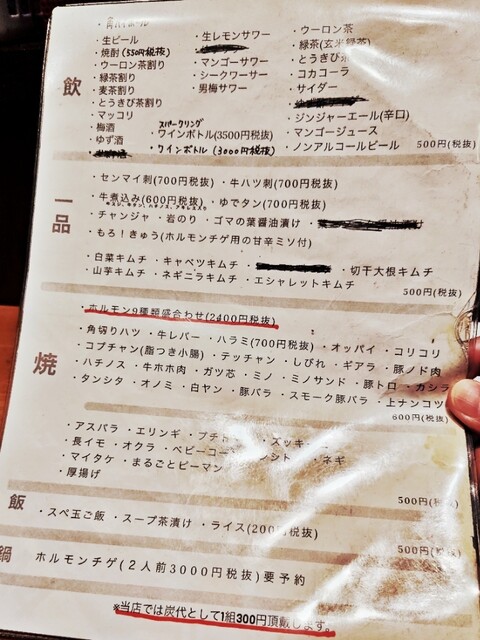 飲
・生ビール
・焼酎(550円税抜)
・ウーロン茶割り
・緑茶割り
・麦茶割り
・とうきび茶割り
・マッコリ
・梅酒
・ゆず酒
・生レモンサワー
・マンゴーサワー
・シークワーサー
・男梅サワー
スパークリング
・ワインボトル(3500円税抜)
・ワインボトル(3000円税抜)
・ウーロン茶
・緑茶(玄米緑茶)
・とうきび茶
・コカコーラ
・サイダー
・ジンジャーエール(辛口)
・マンゴージュース
・ノンアルコールビール
500円(税抜)
一品
・センマイ刺(700円税抜) ・牛ハツ刺(700円税抜)
・牛煮込み(600円税抜) ・ゆでタン(700円税抜)
・チャンジャ ・岩のり ・ゴマの葉醤油漬け
・もろ!きゅう(ホルモンチゲ用の甘辛ミソ付)
・白菜キムチ ・キャベツキムチ ・切干大根キムチ
・山芋キムチ ・ネギニラキムチ ・エシャレットキムチ
500円(税抜)
焼
・ホルモン9種類盛合わせ(2400円税抜)
・角切りハツ ・牛レバー ・ハラミ(700円税抜) ・オッパイ ・コリコリ
・コプチャン(脂つき小腸) ・テッチャン ・しびれ ・ギアラ ・豚ノド肉
・ハチノス ・牛ホホ肉 ・ガツ芯 ・ミノ ・ミノサンド ・豚トロ ・カシラ
・タンシタ ・オノミ ・白ヤン ・豚バラ ・スモーク豚バラ ・上ナンコツ
600円(税抜)
・アスパラ ・エリンギ ・プチ
・長イモ ・オクラ ・ベビーコーン ・ネギ
・マイタケ ・まるごとピーマン
・厚揚げ
500円(税抜)
飯
・スペ玉ご飯 ・スープ茶漬け ・ライス(200円税抜)
500円(税抜)
鍋
ホルモンチゲ(2人前3000円税抜)要予約
※当店では炭代として1組300円頂戴します。